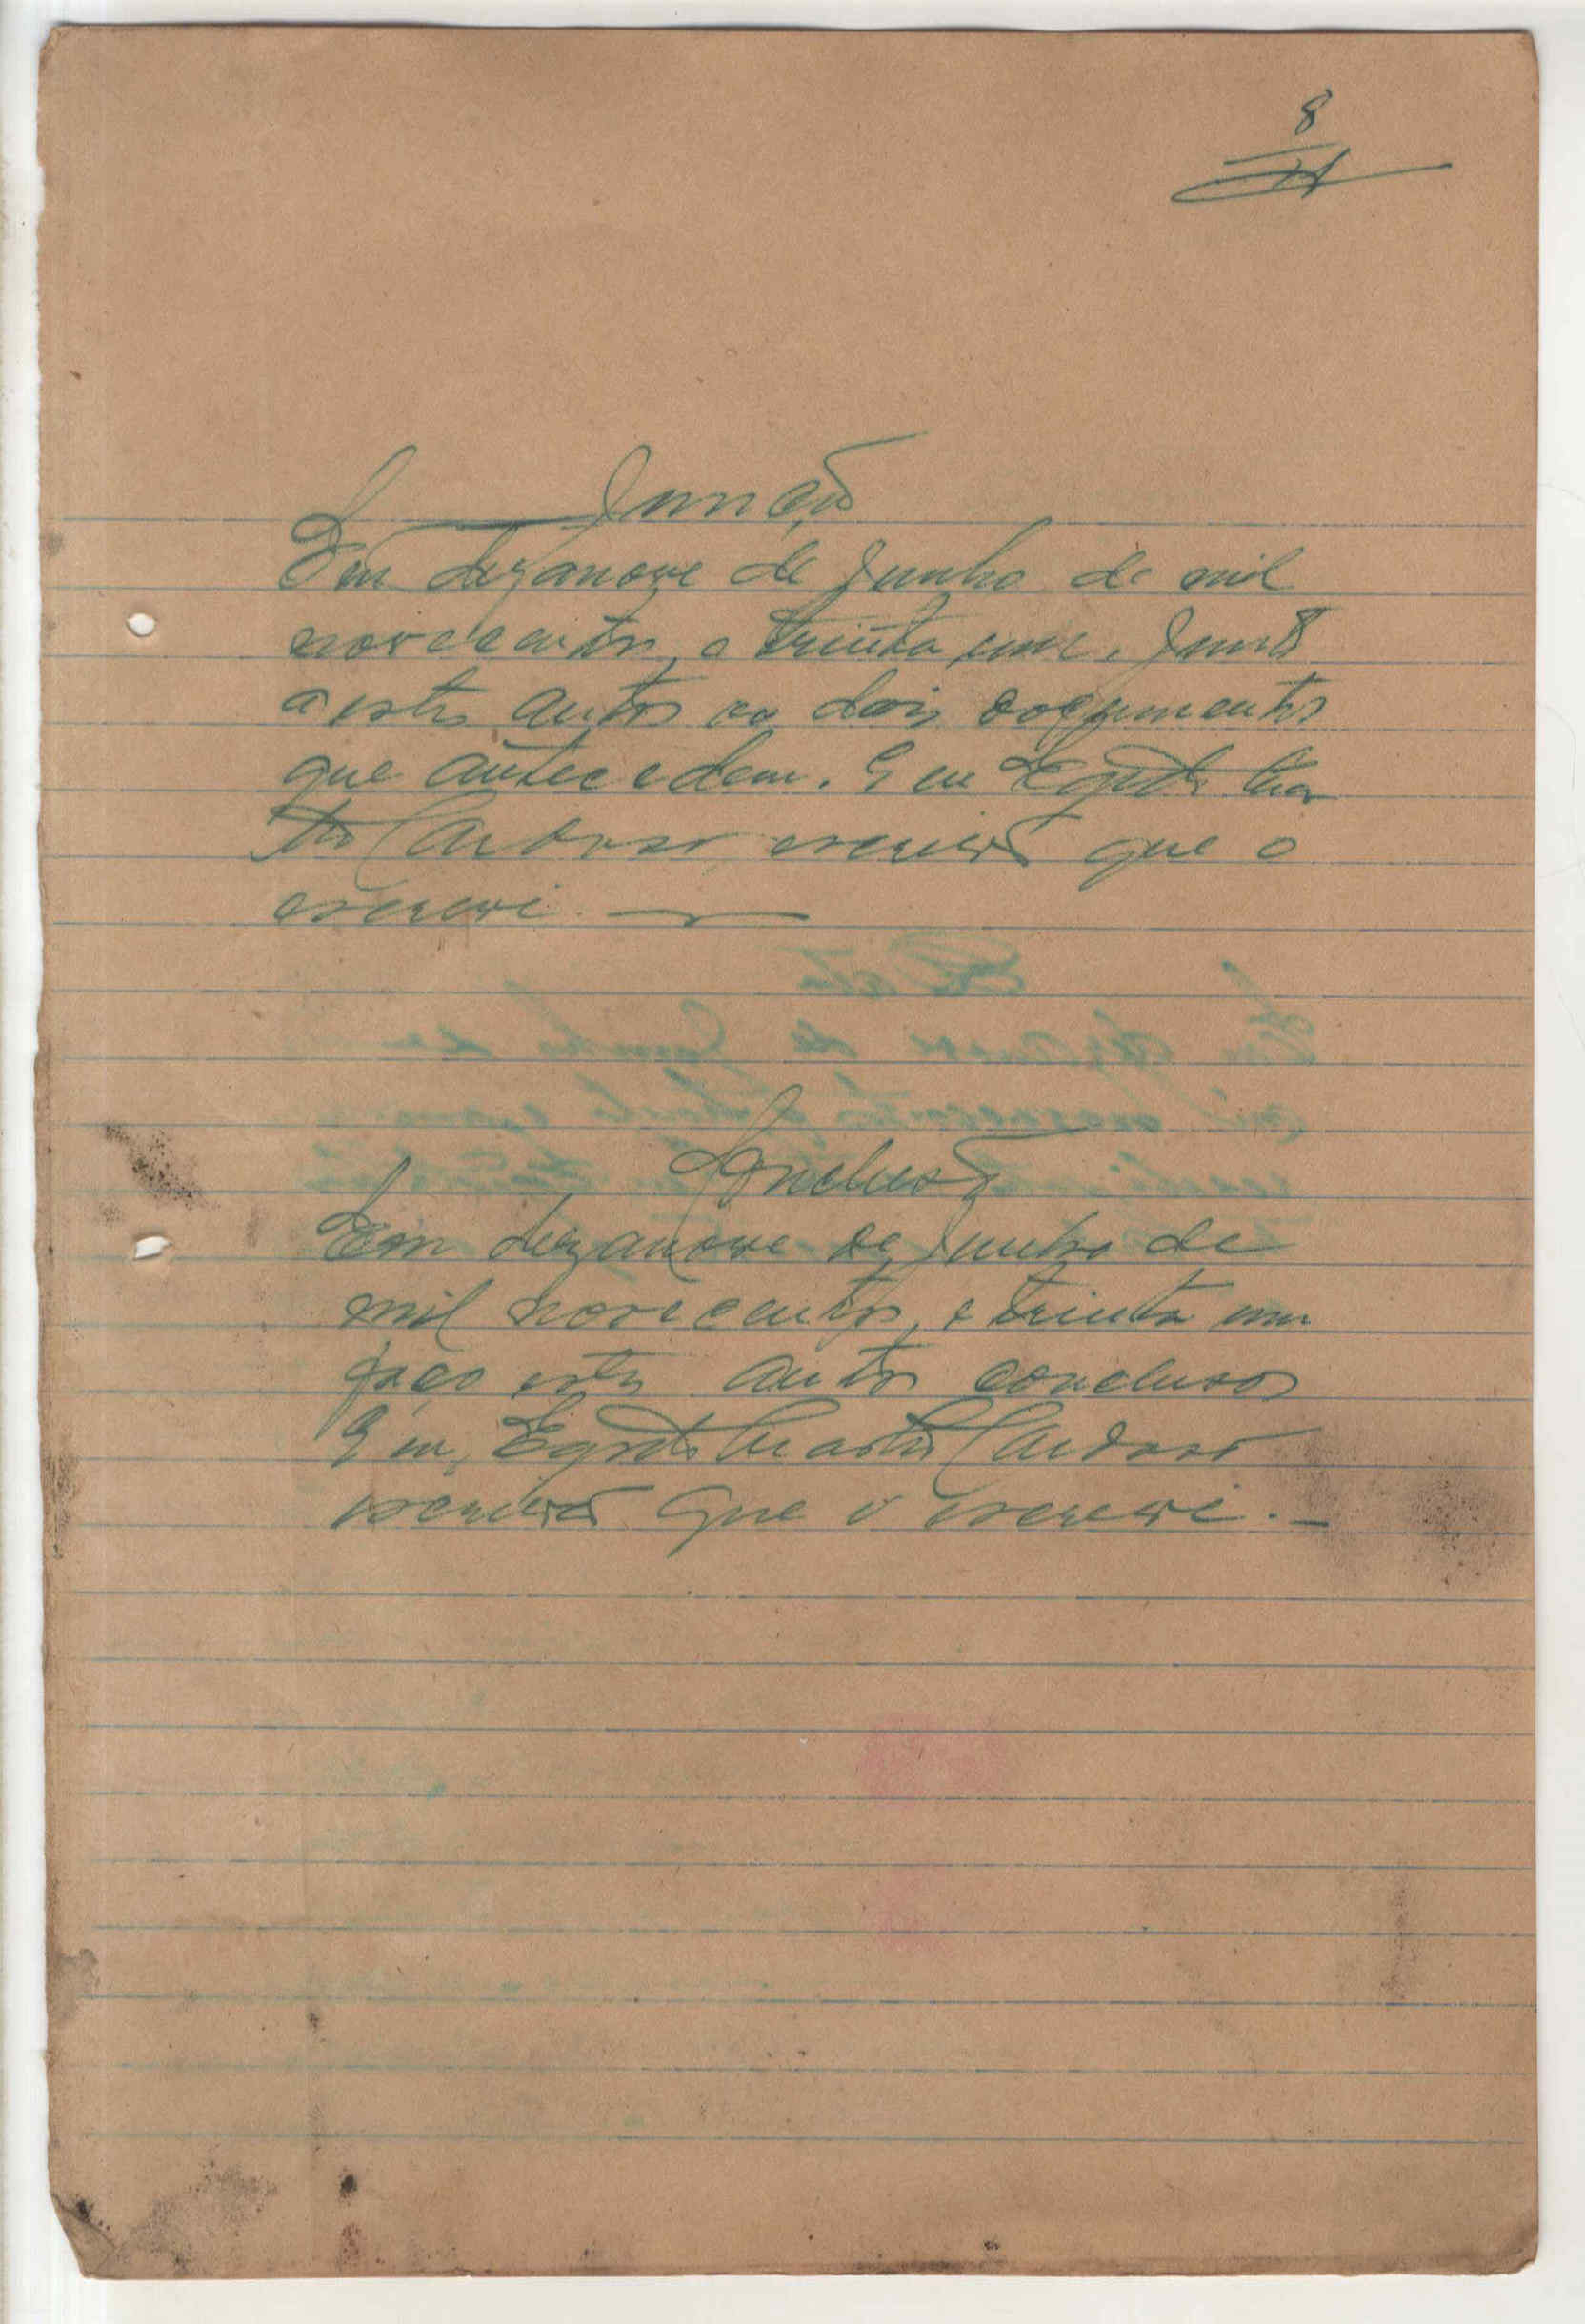 8
Junção
Em dezanove de Junho de mil
novecentos, e trinta um, Junto
a estes autos os dois documentos
que antecedem. E eu Egydio
Cardoso, escrivão que o
escrevi.
Conclusão
Em dezanove de Junho de
mil novecentos, e trinta um
faço estes autos conclusos
E eu, Egydio Martins Cardoso
escrivão que o escrevi.